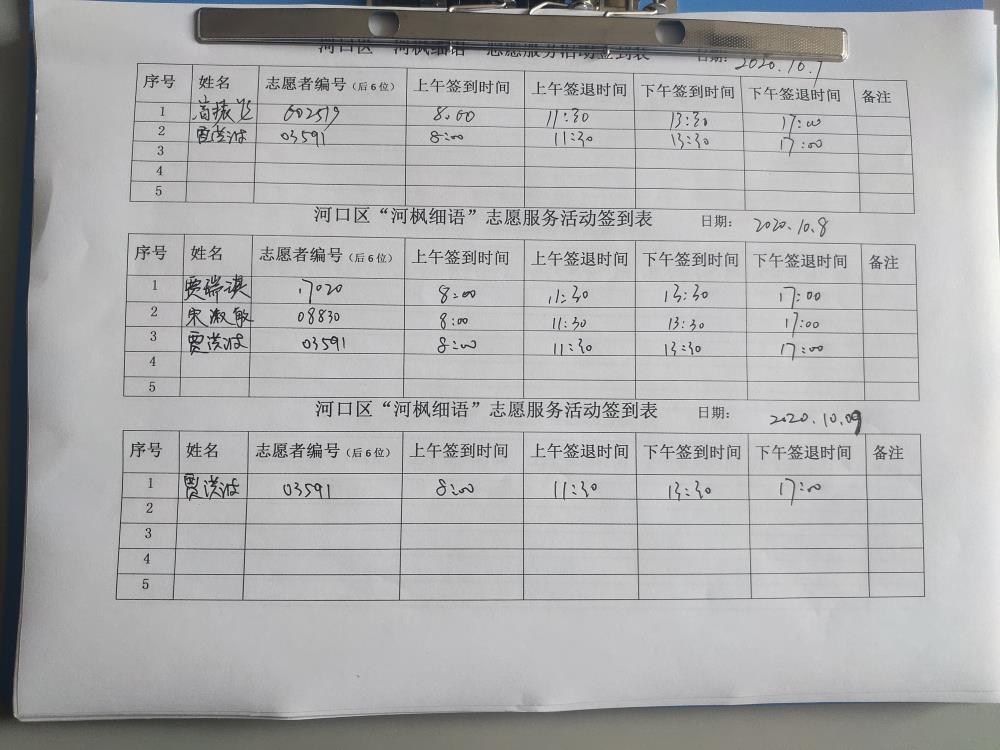 河口区“河枫细语”志愿服务活动签到表 日期: 2020.10.7
序号 姓名 志愿者编号(后6位) 上午签到时间 上午签退时间 下午签到时间 下午签退时间 备注
1 602519 8:00 11:30 13:30 17:00
2 贾洪波 03591 8:00 11:30 13:30 17:00
3
4
5
河口区“河枫细语”志愿服务活动签到表 日期: 2020.10.8
序号 姓名 志愿者编号(后6位) 上午签到时间 上午签退时间 下午签到时间 下午签退时间 备注
1 贾瑞淇 17020 8:00 11:30 13:30 17:00
2 宋淑敏 08830 8:00 11:30 13:30 17:00
3 贾洪波 03591 8:00 11:30 13:30 17:00
4
5
河口区“河枫细语”志愿服务活动签到表 日期: 2020.10.09
序号 姓名 志愿者编号(后6位) 上午签到时间 上午签退时间 下午签到时间 下午签退时间 备注
1 贾洪波 03591 8:00 11:30 13:30 17:00
2
3
4
5